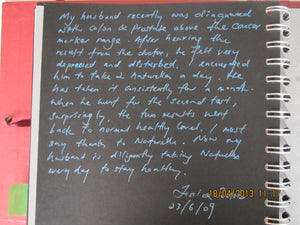 My husband recently was diagnosed
with colon & prostate above the cancer
marker range. After hearing the
result from the doctor, he felt very
depressed and disturbed. I encouraged
him to take 2 Naturella a day. He
has taken it consistently for a month.
When he went for the second test,
surprisingly, the two results went
back to normal healthy level. I must
say thanks to Naturelle. Now my
husband is diligently taking Naturelle
every day to stay healthy.
18/01/2013 11:
23/6/09